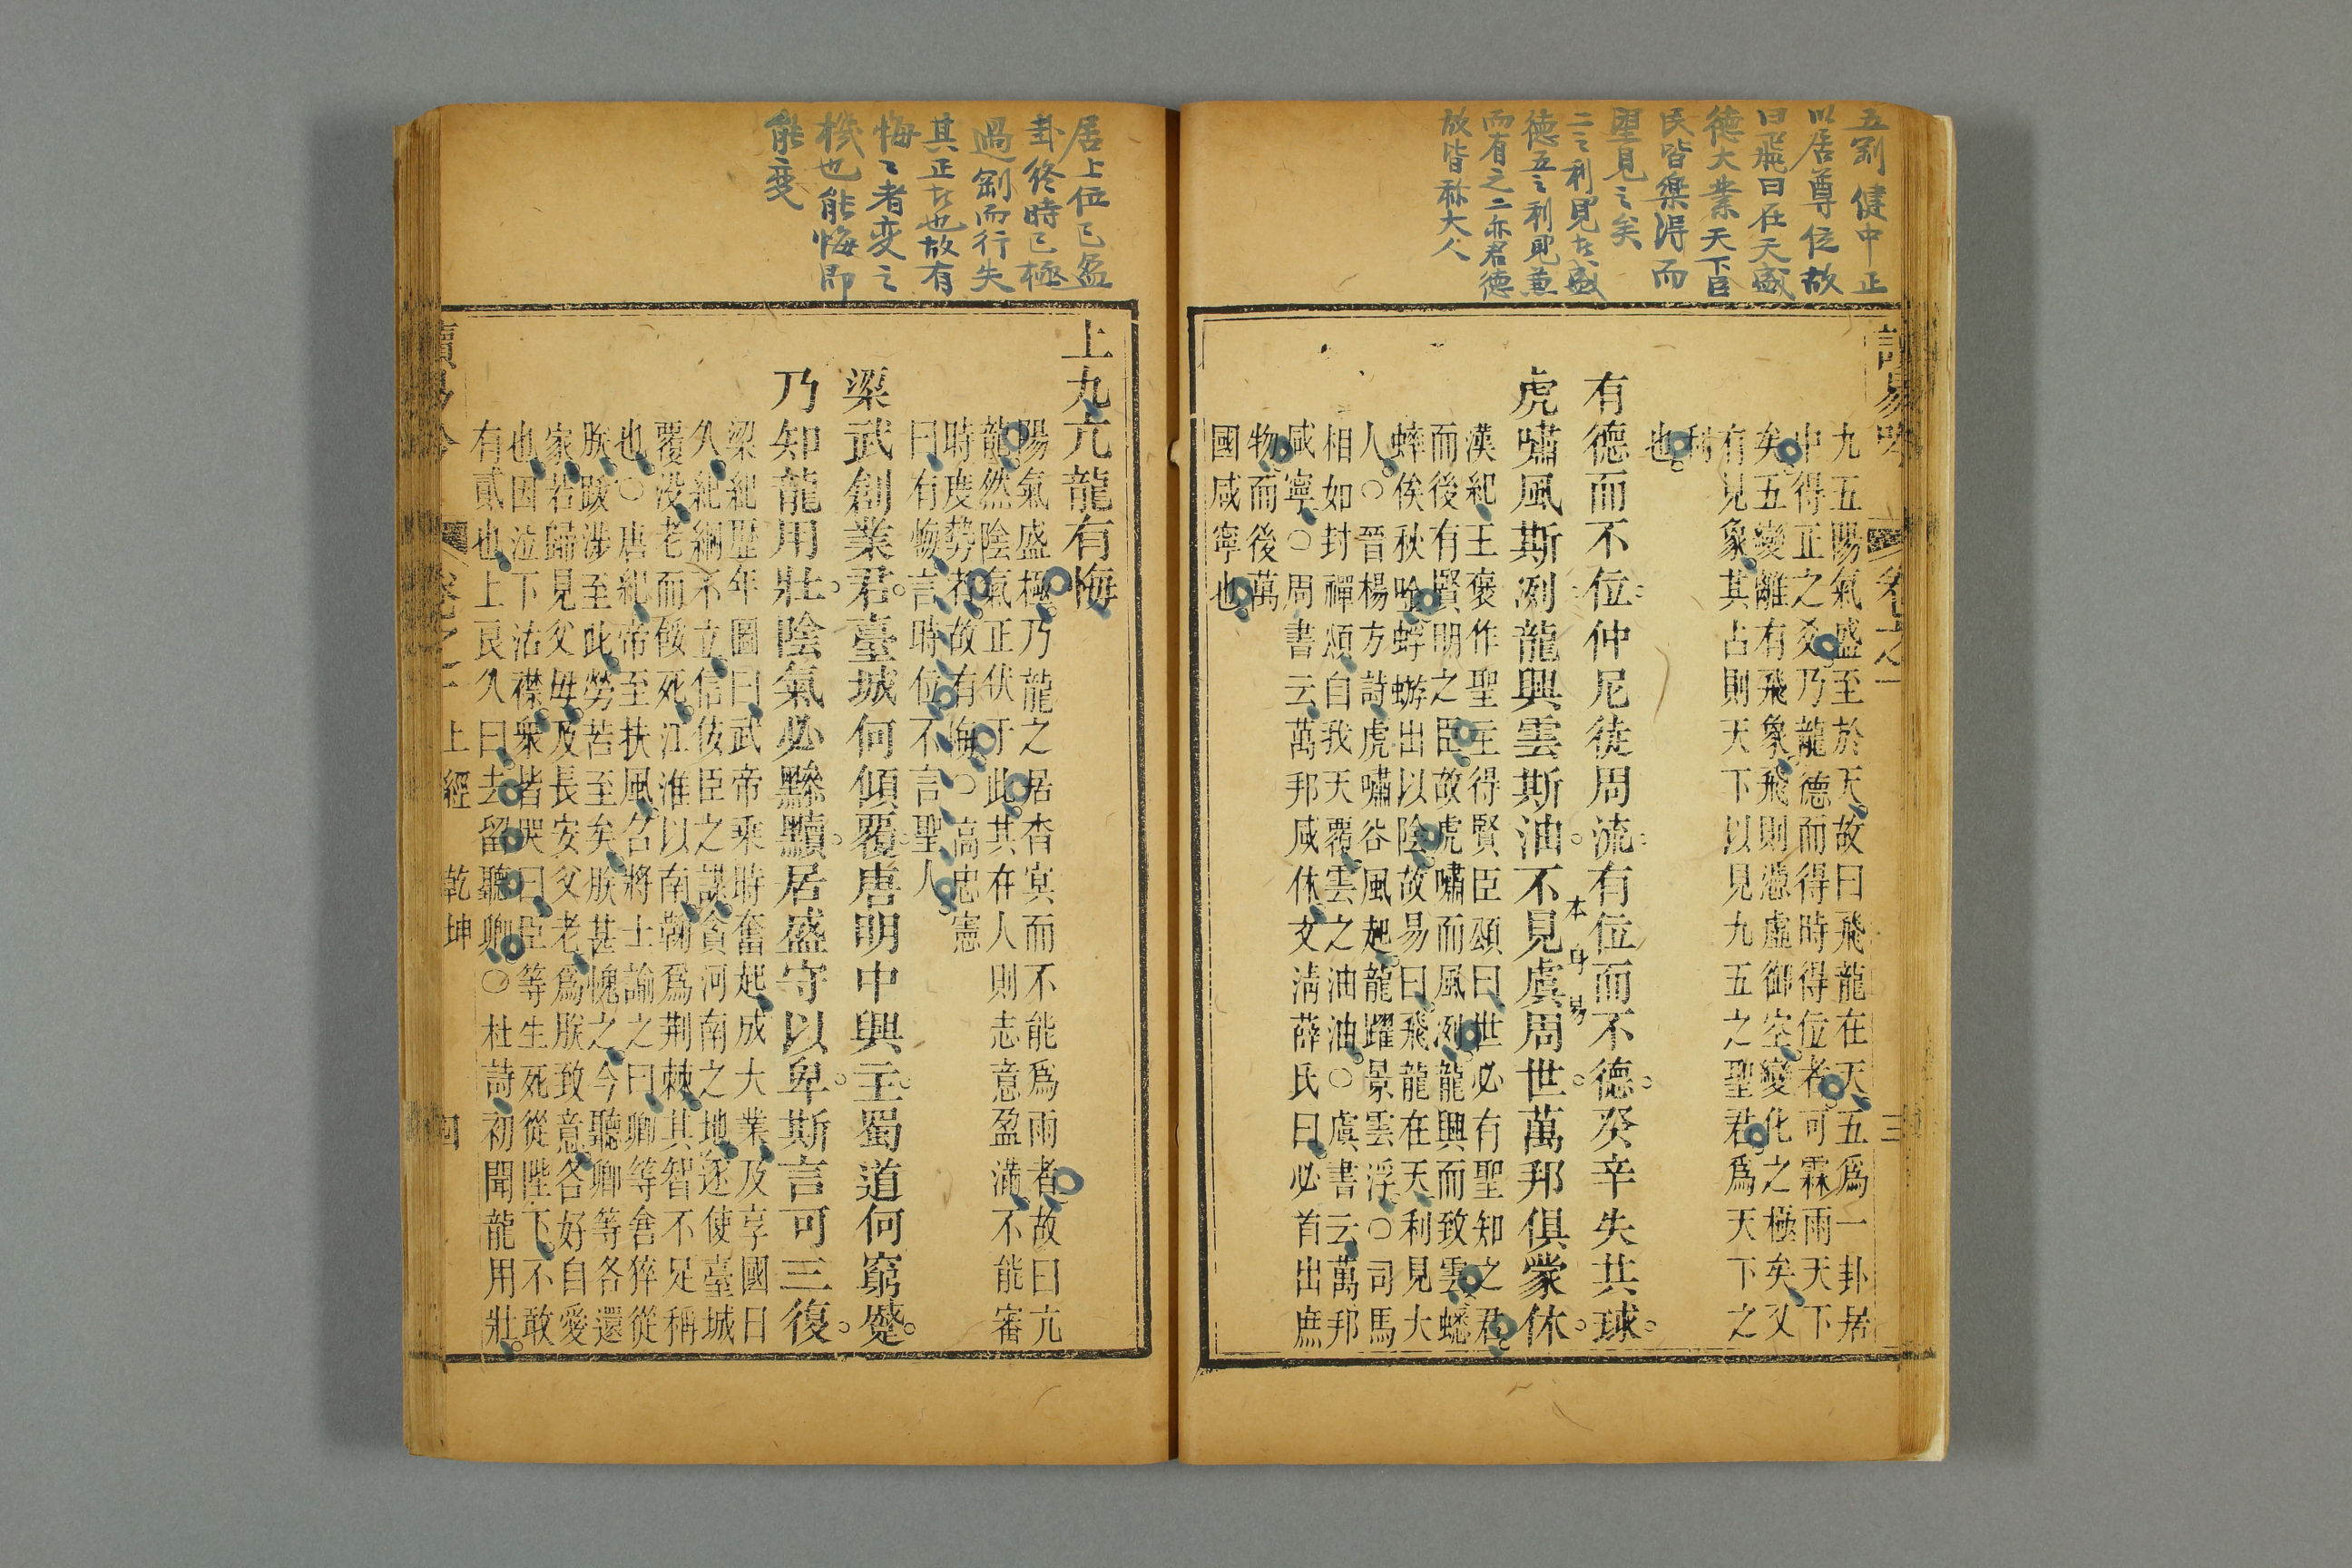 五剛健中正
以居尊位故
曰飛曰在天盛
德大業天下臣
民皆樂得而
望見之矣
二之利見在盛
德五之利見兼
而有之二亦君德
故皆称大人
九五陽氣盛至於天故曰飛龍在天五爲一卦居
中得正之爻乃龍德而得時得位者可霖雨天下
矣五變離有飛象飛則憑虛御空變化之極矣又
有見象其占則天下以見九五之聖君爲天下之
利
也
有德而不位仲尼徒周流有位而不德癸辛失共球
本身易
虎嘯風斯冽龍興雲斯油不見虞周世萬邦俱蒙休
漢紀王褒作聖主得賢臣頌曰世必有聖知之君
而後有賢明之臣故虎嘯而風冽龍興而致雲蟋
蟀俟秋唫蜉蝣出以陰故易曰飛龍在天利見大
人○晉楊方詩虎嘯谷風起龍躍景雲浮○司馬
相如封禪頌自我天覆雲之油油○虞書云萬邦
咸寧○周書云萬邦咸休爻淸薛氏曰必首出庶
物而後萬
國咸寧也
卷之一
三
居上位已盈
卦終時已極
過剛而行失
其正在也故有
悔〻者变之
機也能悔即
能变
上九亢龍有悔
陽氣盛極乃龍之居杳㝠而不能爲雨者故曰亢
龍然陰氣正伏于此其在人則志意盈滿不能審
時度勢者故有悔○高忠憲
曰有悔言時位不言聖人
梁武創業君臺城何傾覆唐明中興主蜀道何窮蹙
乃知龍用壯陰氣必黲黷居盛守以卑斯言可三復
梁紀歷年圖曰武帝乘時奮起成大業及享國日
久紀綱不立信侫臣之謀貪河南之地遂使臺城
覆没老而餒死江淮以南鞠爲荆棘其智不足稱
也○唐紀帝至扶風名將士諭之曰卿等倉猝從
朕跋涉至此勞苦至矣朕甚愧之今聽卿等各還
家若歸見父母及長安父老爲朕致意各好自愛
也因泣下沾襟衆皆哭曰臣等生死從陛下不敢
有貳也上良久曰去留聽卿○杜詩初聞龍用壯
卷之一 上經 乾坤 四